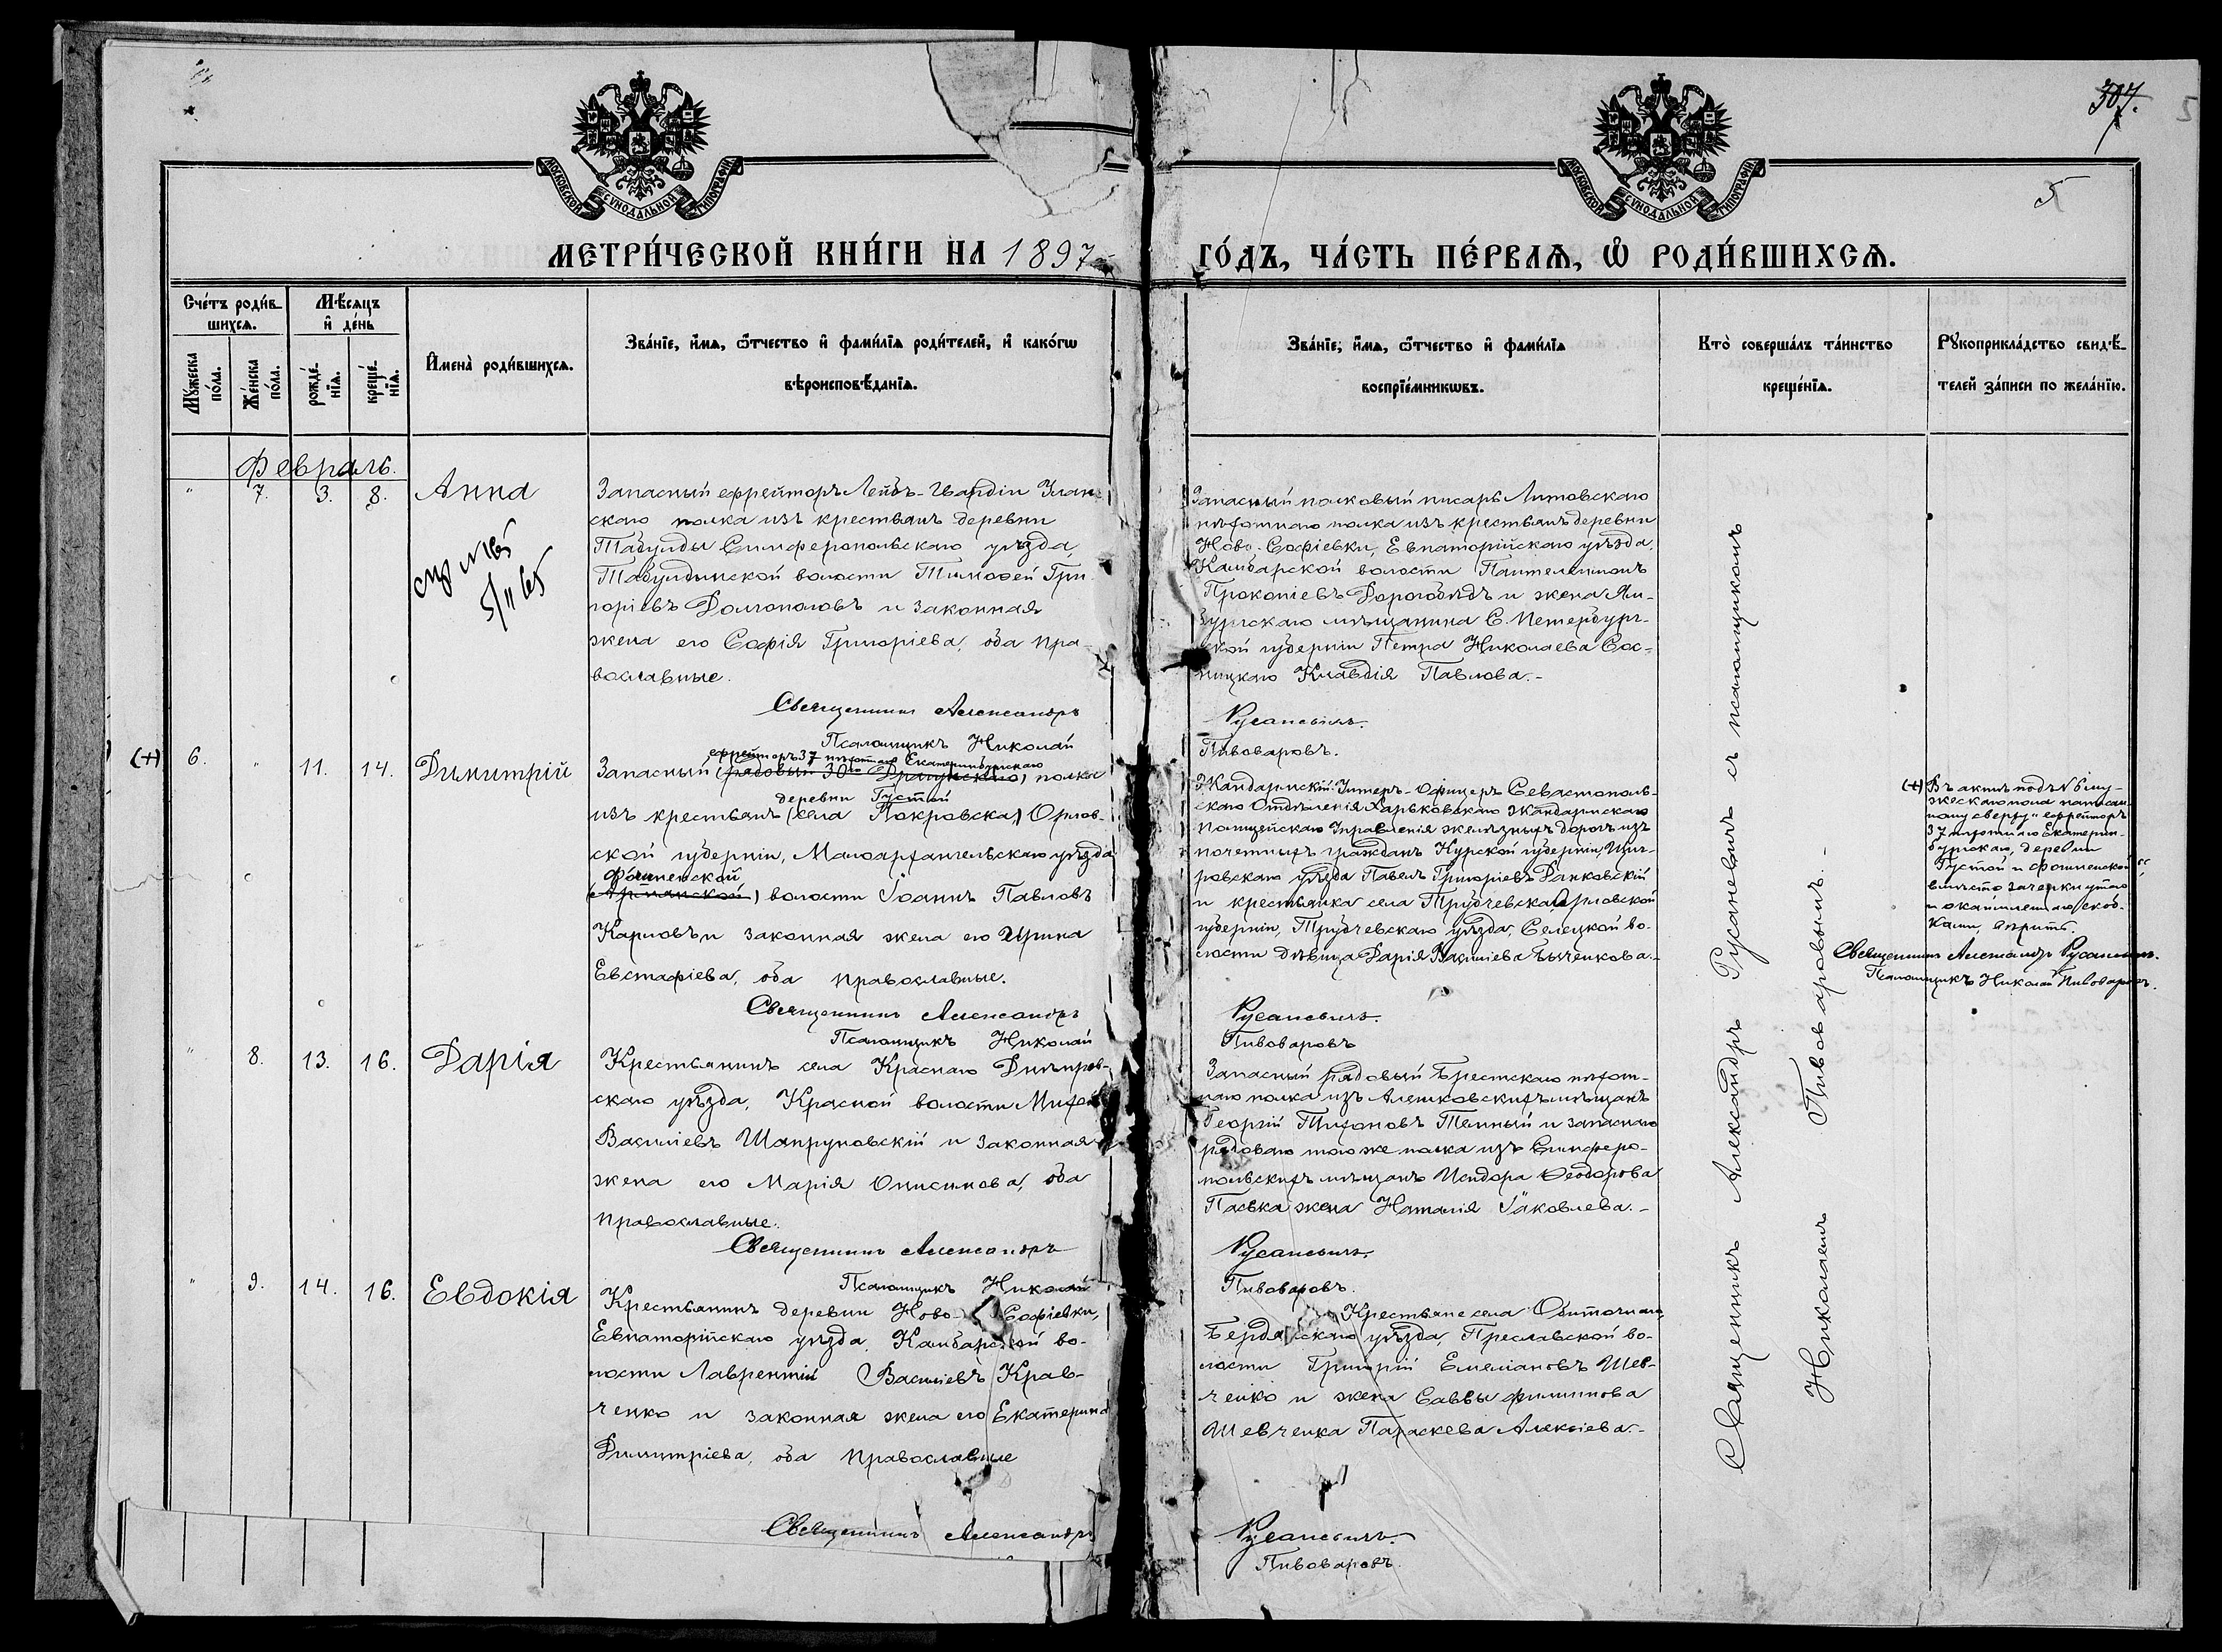 307.
5
МОСКОВСКОЙ СѴНОДАЛЬНОЙ ТИПОГРАФІИ
МОСКОВСКОЙ СѴНОДАЛЬНОЙ ТИПОГРАФІИ
МЕТРИ́ЧЕСКОЙ КНИ́ГИ НА 1897
ГО́ДЪ, ЧА́СТЬ ПЕ́РВАЯ, Ѡ РОДИ́ВШИХСЯ.
Сче́тъ роди́в-
шихся.
Мꙋ́жеска по́ла.
Же́нска по́ла.
Мѣ́сяцъ
и̂ де́нь
рожде́-
нїя.
креще́-
нїя.
И̂мена̀ роди́вшихся.
Зва́нїе, и́мя, ѻ҆́тчество и̂ фами́лїя роди́телей, и̂ како́гѡ
вѣроисповѣ́данїя.
Зва́нїе, и́мя, ѻ҆́тчество и̂ фами́лїя
воспрїе́мникѡвъ.
Кто̀ соверша́лъ та́инство
креще́нїя.
Рꙋкоприкла́дство свидѣ́-
телей за́писи по жела́нїю.
Февраль.
" 7. 3. 8. Анна
5/II 65
Запасный ефрейторъ Лейбъ-Гвардіи Улан-
скаго полка изъ крестьянъ деревни
Табулды Симферопольскаго уѣзда,
Табулдинской волости Тимоѳей Гри-
горіевъ Долгополовъ и законная
жена его Софія Григоріева, оба пра-
вославные.
Священникъ Александръ
Псаломщикъ Николай
Запасный полковый писарь Литовскаго
пѣхотнаго полка изъ крестьянъ деревни
Ново-Софіевки, Евпаторійскаго уѣзда,
Камбарской волости Пантелеимонъ
Прокопіевъ Дорогобѣдъ и жена Ям-
бургскаго мѣщанина С. Петербург-
ской губерніи Петра Николаева Сос-
ницкаго Клавдія Павлова.-
Русаневичъ.
Пивоваровъ.
(+) 6. " 11. 14. Димитрій
ефрейторъ 37 пѣхотнаго Екатеринбургскаго
Запасный (рядовый 30го Драгунскаго) полка
деревни Густой
изъ крестьянъ (села Покровска) Орлов-
ской губерніи, Малоархангельскаго уѣзда
Фошненской
волости Іоаннъ Павловъ
Карповъ и законная жена его Ирина
Евстафіева, оба православные.
Священникъ Александръ
Псаломщикъ Николай
Жандармскій Унтеръ-Офицеръ Севастополь-
скаго Отдѣленія Харьковскаго Жандармскаго
Полицейскаго Управленія желѣзныхъ дорогъ изъ
почетныхъ гражданъ Курской губерніи, Щиг-
ровскаго уѣзда Павелъ Григоріевъ Данковскій
и крестьянка села Трубчевска, Орловской
губерніи, Трубчевскаго уѣзда, Селецкой во-
лости дѣвица Дарія Василіева Быченкова.-
Русаневичъ.
Пивоваровъ
(+) Въ актѣ подъ №6 му-
жескаго пола написан-
ному сверху "ефрейторъ
37 пѣхотнаго Екатерин-
бургскаго, деревни
Густой и Фошненской"
вмѣсто зачеркнутаго
и окаймленнаго скоб-
ками, вѣрить.
Священникъ Александръ Русаневичъ.
Псаломщикъ Николай Пивоваровъ.
" 8. 13. 16. Дарія
Крестьянинъ села Краснаго Днѣпров-
скаго уѣзда, Красной волости
Василіевъ Шапруновскій и законная
жена его Марія Онисимова, оба
православные.
Священникъ Александръ
Псаломщикъ Николай
Запасный рядовый Брестскаго пѣхот-
наго полка изъ Алешковскихъ мѣщанъ
Георгій Тихоновъ Темный и запаснаго
рядоваго того же полка изъ Симферо-
польскихъ мѣщанъ Исидора Ѳеодорова
Паська жена Наталія Іаковлева.-
Русаневичъ.
Пивоваровъ.
" 9. 14. 16. Евдокія
Крестьянинъ деревни Ново-Софіевки,
Евпаторійскаго уѣзда, Камбарской во-
лости Лаврентій Василіевъ Крав-
ченко и законная жена его Екатерина
Димитріева, оба православные
Священникъ Александръ
Крестьяне села Обиточнаго,
Бердянскаго уѣзда, Преславской во-
лости Григорій Емеліановъ Шев-
ченко и жена Саввы Филиппова
Шевченка Параскева Алексіева.-
Русаневичъ.
Пивоваровъ.
Священникъ Александръ Русаневичъ съ псаломщикомъ
Николаемъ Пивоваровымъ.-